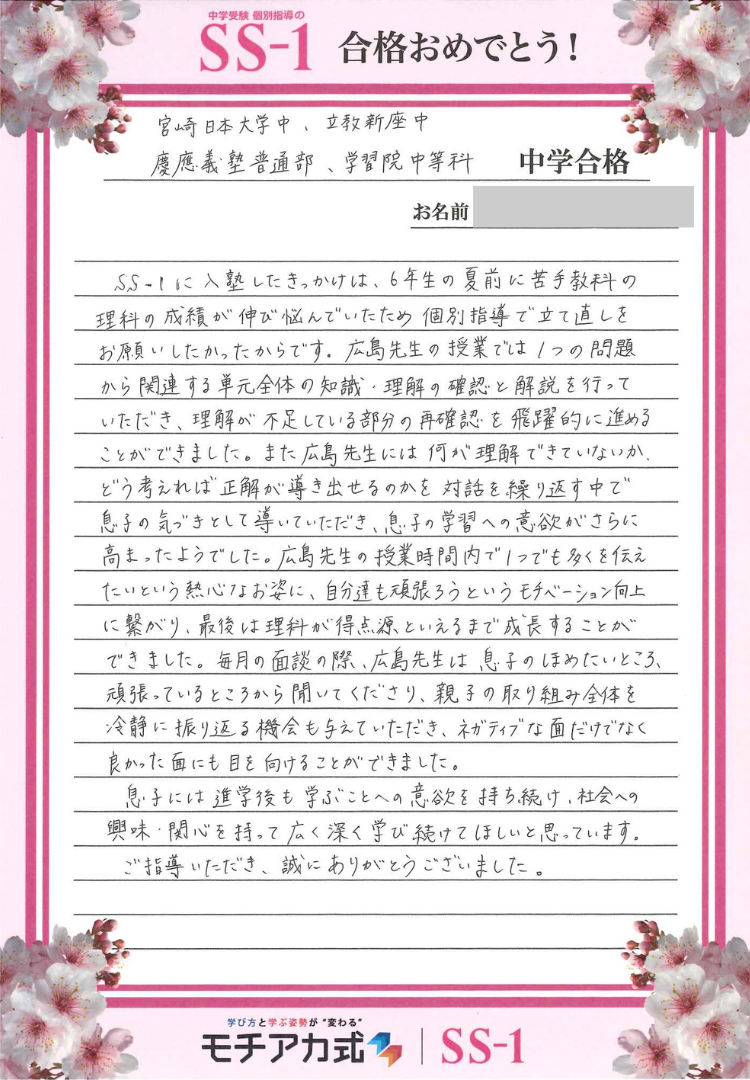 中学受験 個別指導の
SS-1 合格おめでとう!
宮崎日本大学中、立教新座中
慶應義塾普通部、学習院中等科 中学合格
お名前
SS-1に入塾したきっかけは、6年生の夏前に苦手教科の
理科の成績が伸び悩んでいたため個別指導で立て直しを
お願いしたかったからです。広島先生の授業では1つの問題
から関連する単元全体の知識・理解の確認と解説を行って
いただき、理解が不足している部分の再確認を飛躍的に進める
ことができました。また広島先生には何が理解できていないか、
どう考えれば正解が導き出せるのかを対話を繰り返す中で
息子の気づきとして導いていただき、息子の学習への意欲がさらに
高まったようでした。広島先生の授業時間内で1つでも多くを伝え
たいという熱心なお姿に、自分達も頑張ろうというモチベーション向上
に繋がり、最後は理科が得点源といえるまで成長することが
できました。毎月の面談の際、広島先生は息子のほめたいところ、
頑張っているところから聞いてくださり、親子の取り組み全体を
冷静に振り返る機会も与えていただき、ネガティブな面だけでなく
良かった面にも目を向けることができました。
息子には進学後も学ぶことへの意欲を持ち続け、社会への
興味・関心を持って広く深く学び続けてほしいと思っています。
ご指導いただき、誠にありがとうございました。
学び方と学ぶ姿勢が"変わる"
モチアカ式 SS-1